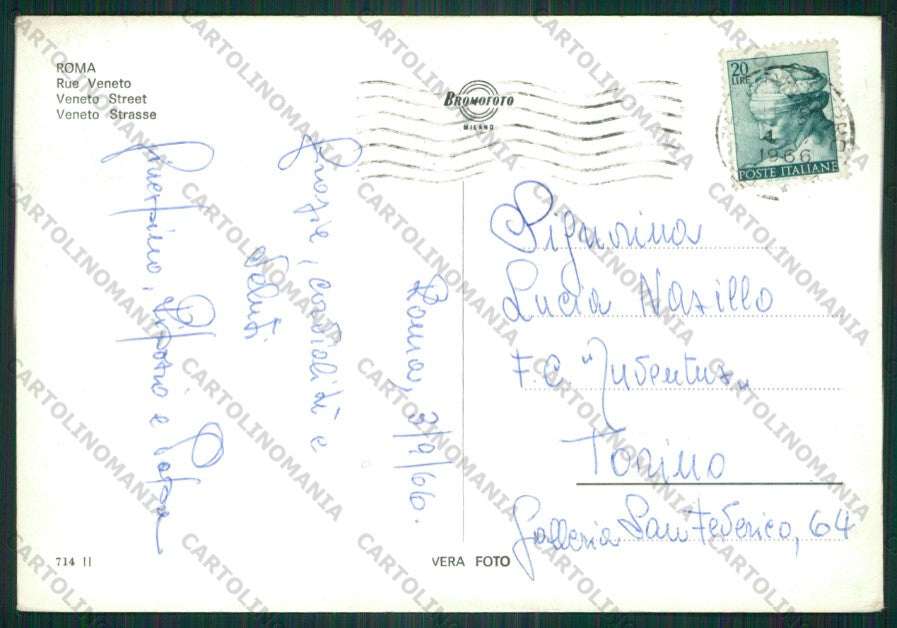 ROMA
Rue Veneto
Veneto Street
Veneto Strasse
BROMOFOTO
MILANO
20
LIRE
1966
POSTE ITALIANE
Roma, 3/9/66.
Grazie, cordialità e
saluti
e
Signorina
Lucia
F.C "Juventus"
Torino
Galleria San Federico, 64
714 II
VERA FOTO
CARTOLINOMANIA